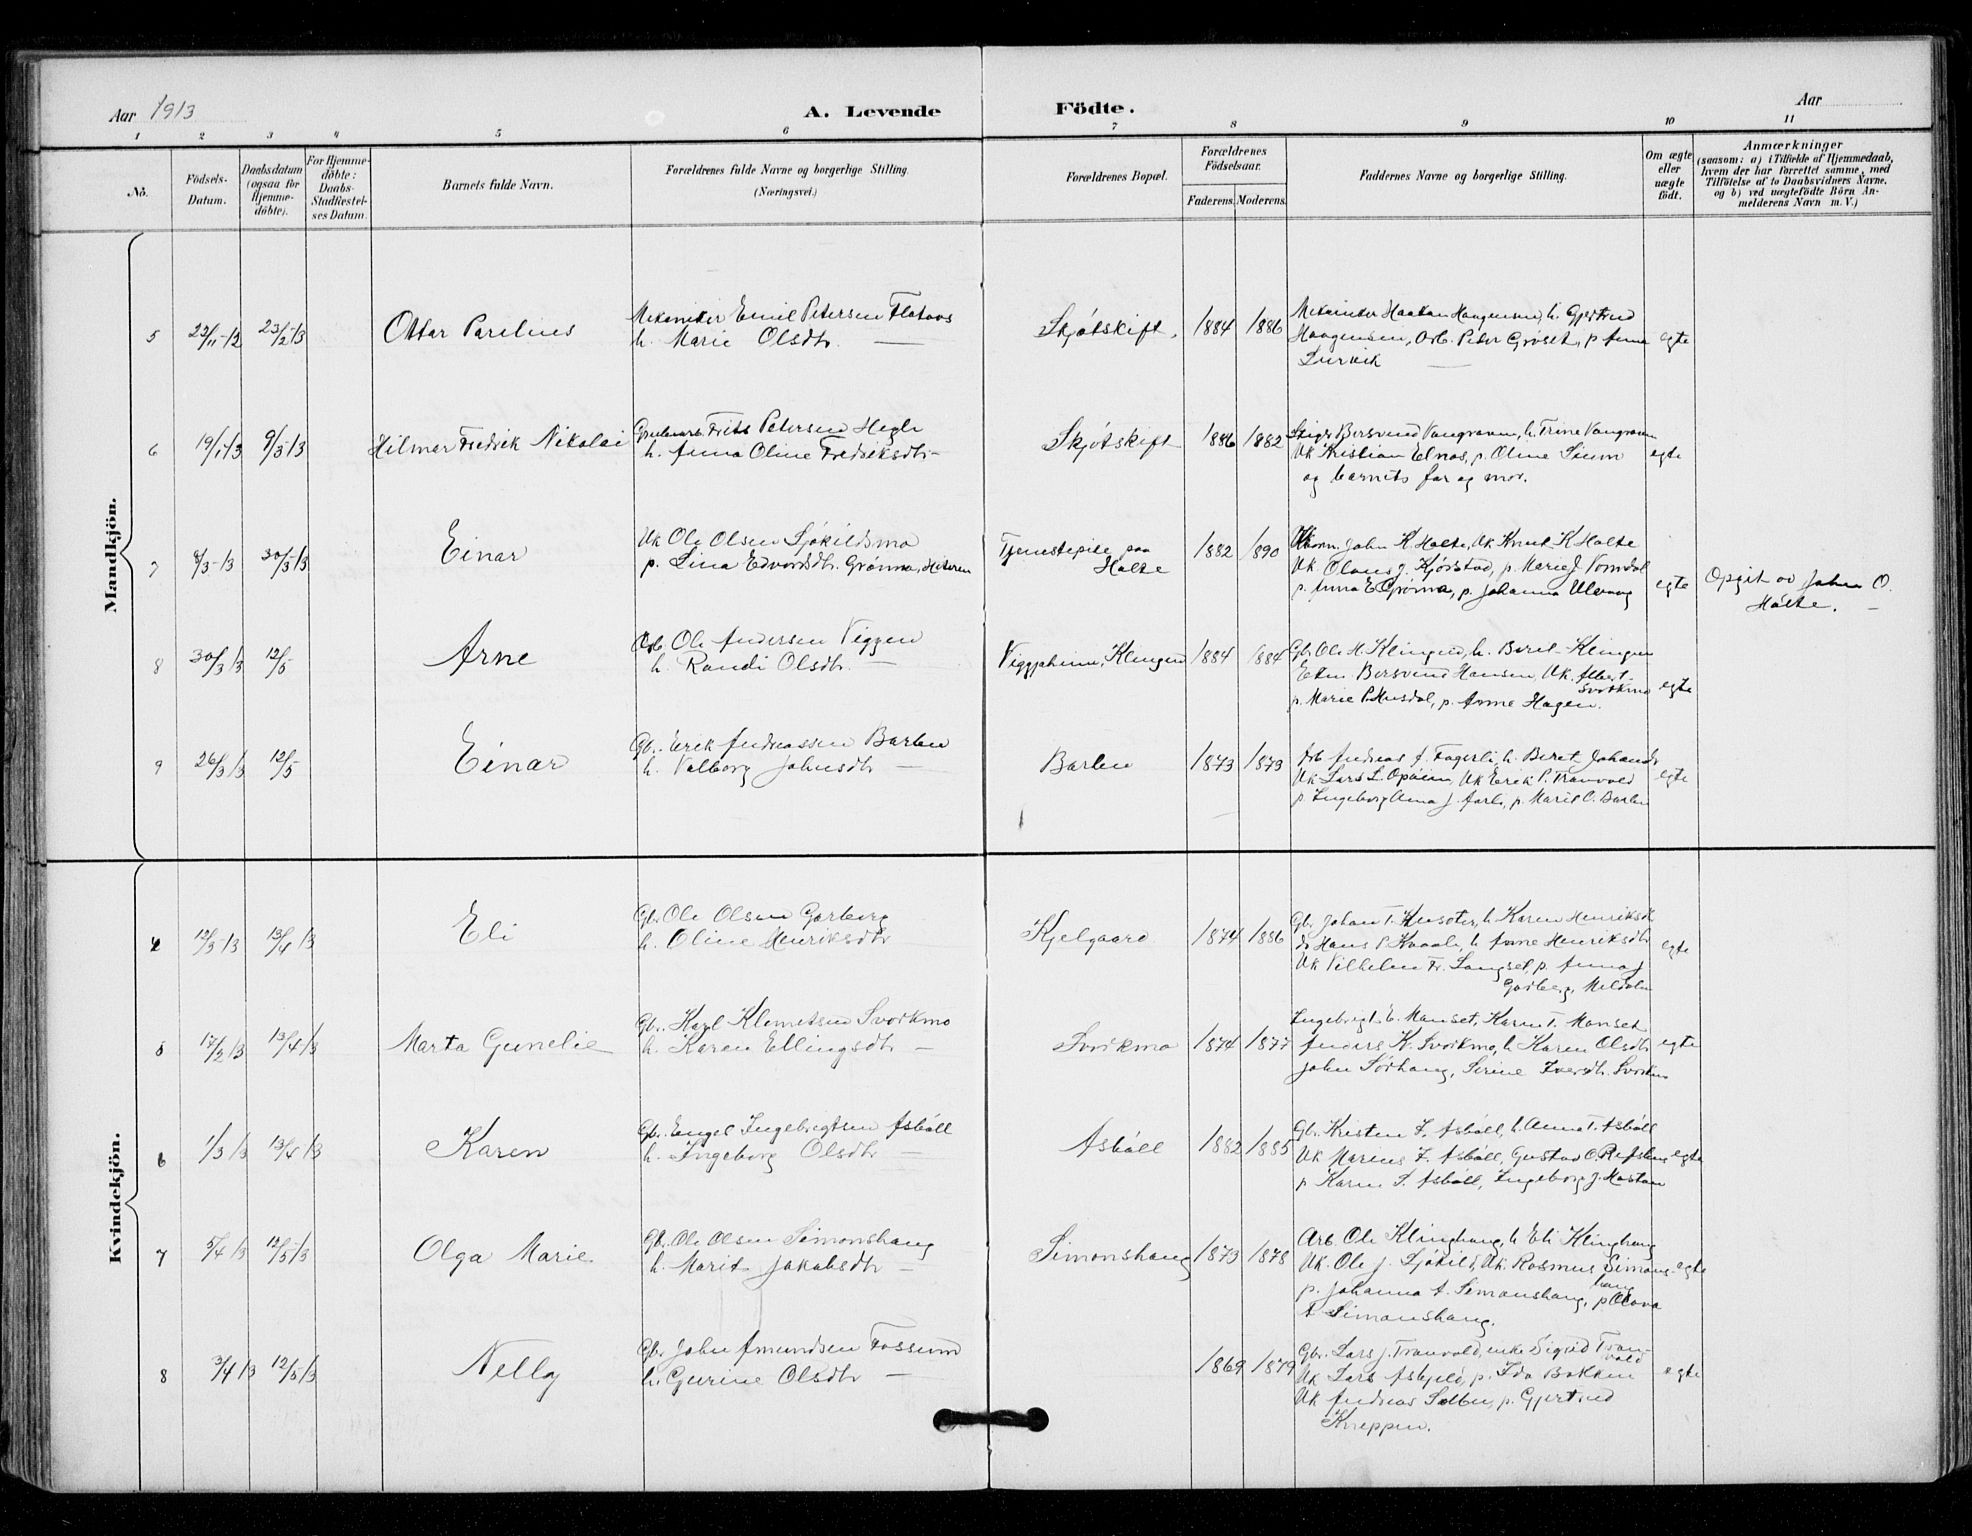 Aar 1913
A. Levende Födte.
Aar
1 2 3 4 5 6 7 8 9 10 11
No.
Födsels-Datum.
Daabsdatum (ogsaa for Hjemme-döbte).
For Hjemme-döbte: Daabs-Stadfæstel-ses Datum.
Barnets fulde Navn.
Forældrenes fulde Navne og borgerlige Stilling. (Næringsvei.)
Forældrenes Bopæl.
Forældrenes Födselsaar.
Faderens. Moderens.
Faddernes Navne og borgerlige Stilling.
Om ægte eller uægte födt.
Anmærkninger (saasom: a) i Tilfælde af Hjemmedaab, hvem der har forrettet samme, med Tilföielse af to Daabsvidners Navne, og b) ved uægtefödte Börn An-melderens Navn m. V.)
Mandkjön.
5 22/11-12 23/2-13 Ottar Parelius
Mekaniker Emil Petersen Flataas
h. Marie Olsdtr. —
Skjötskift. 1884 1886
Mekaniker Haakon Haagensen, h. Gjertrud
Haagensen, Arb. Peder Gröset, p. Anna
Lurvik —
egte
6 19/1-13 9/3-13 Hilmar Fredrik Nikolai
Grubearb. Frits Petersen Hegle
h. Anna Oline Fredriksdtr. —
Skjötskift 1886 1882
Bersvend Vangraven, h. Trine Vangraven
Uk Kristian Elnas, p. Oline
og barnets far og mor.
egte
7 8/3-13 30/3-13 Einar
Uk Ole Olsen Sjökildsmo
p. Lina Edvardsdtr. Grönna, Hiteren
Tjenestepike paa
Holte
1882 1890
John K. Holte, Uk Knut K. Holte
Uk Olaus J. Kjörstad, p. Marie J.
p. Anna E Grönna, p. Johanna
egte
Opgit av John O.
Holte. —
8 30/3 13 12/5 Arne
Arb. Ole Andersen Viggen
h. Randi Olsdtr. —
Viggjaheim, Klungen 1884 1884
Gbr. Ole H. Klingen, h. Beret Klingen
Bersvend Hansen, Uk. Albert
Svorkmo
p. Marie P. Musdal, p. Anne Hagen.
egte
9 26/3 13 12/5 Einar
Gbr. Erik Andreassen Barlien
h. Valborg Johnsdtr —
Barlien 1873 1873
Arb Andreas A. Fagerli, h. Beret Johansdr
Uk Lars L. Opöien, Uk Erik P. Tranvold
p. Ingeborg Anna J. Aarli, p. Marit O. Barlien
egte
Kvindekjön.
4 12/3 13 13/4 13 Eli
Gbr. Ole Olsen Garberg
h. Oline Henriksdtr
Kjelgaard 1874 1886
Gbr. Johan T. h. Karen Henriksdtr
do Hans P. Kvaale, h. Anne Henriksdtr
Uk Vilhelm Fr. Langset, p. Anna J
Garberg, Meldalen
egte
5 17/2 13 13/4 13 Marta Gunelie
Gbr. Karl Klemetsen Svorkmo
h. Karen Ellingsdtr —
Svorkmo 1874 1877
Ingebrigt E. Monset, Karen T. Monset
Anders K. Svorkmo, h. Karen Olsdtr
John Sörhaug, Serine Iversdtr. Svorkmo
egte
6 1/3 13 13/4 13 Karen
Gbr. Engel Ingebrigtsen Asböll
h. Ingeborg Olsdtr —
Asböll 1882 1885
Gbr. Kristen I. Asböll, h. Anna T. Asböll
Uk Marius I. Asböll, Gustav O. Refshus
p Karen I. Asböll, Ingeborg J. Mostan
egte
7 5/4 13 12/5 13 Olga Marie
Gbr. Ole Olsen Simonshaug
h. Marit Jakobsdtr —
Simonshaug 1873 1878
Arb Ole Klinghaug, h. Eli Klinghaug
Uk. Ole J. Sjökild, Uk. Rasmus Simons-
haug
p. Johanna A. Simonshaug, p Olava
A Simonshaug.
egte
8 3/4 13 12/5 13 Nelly
Gbr. John Amundsen Fossum
h. Gurine Olsdtr —
1869 1879
Gbr. Lars J. Tranvold, enke Sigrid Tran-
vold
Uk Lars Askjelö, p. Ida Bakken
Uk Andreas Solbu, p. Gjertrud
Kneppen.
egte